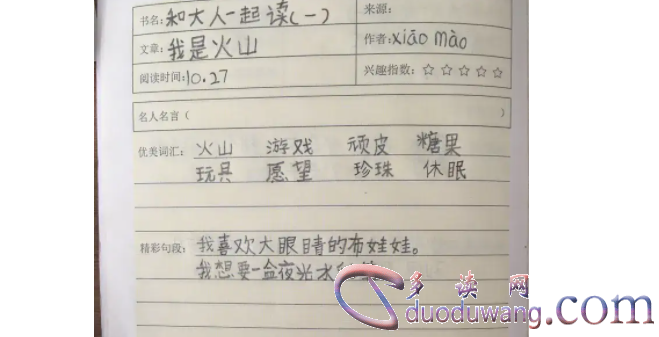 书名：和大人一起读(一) 来源：
文章：我是火山 作者：xiāo mào
阅读时间：10.27 兴趣指数：☆☆☆☆☆
名人名言（ ）
优美词汇：火山 游戏 顽皮 糖果
玩具 愿望 珍珠 休眠
精彩句段：我喜欢大眼睛的布娃娃。
我想要一盒夜光水
多读网
duoduwang.com